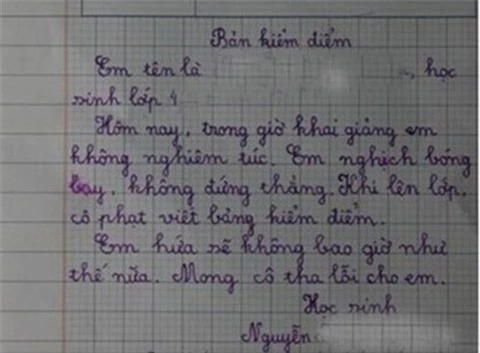 Bản kiểm điểm
Em tên là , học
sinh lớp 4
Hôm nay, trong giờ khai giảng em
không nghiêm túc. Em nghịch bóng
bay, không đứng thẳng. Khi lên lớp,
cô phạt viết bảng kiểm điểm.
Em hứa sẽ không bao giờ như
thế nữa. Mong cô tha lỗi cho em.
Học sinh
Nguyễn